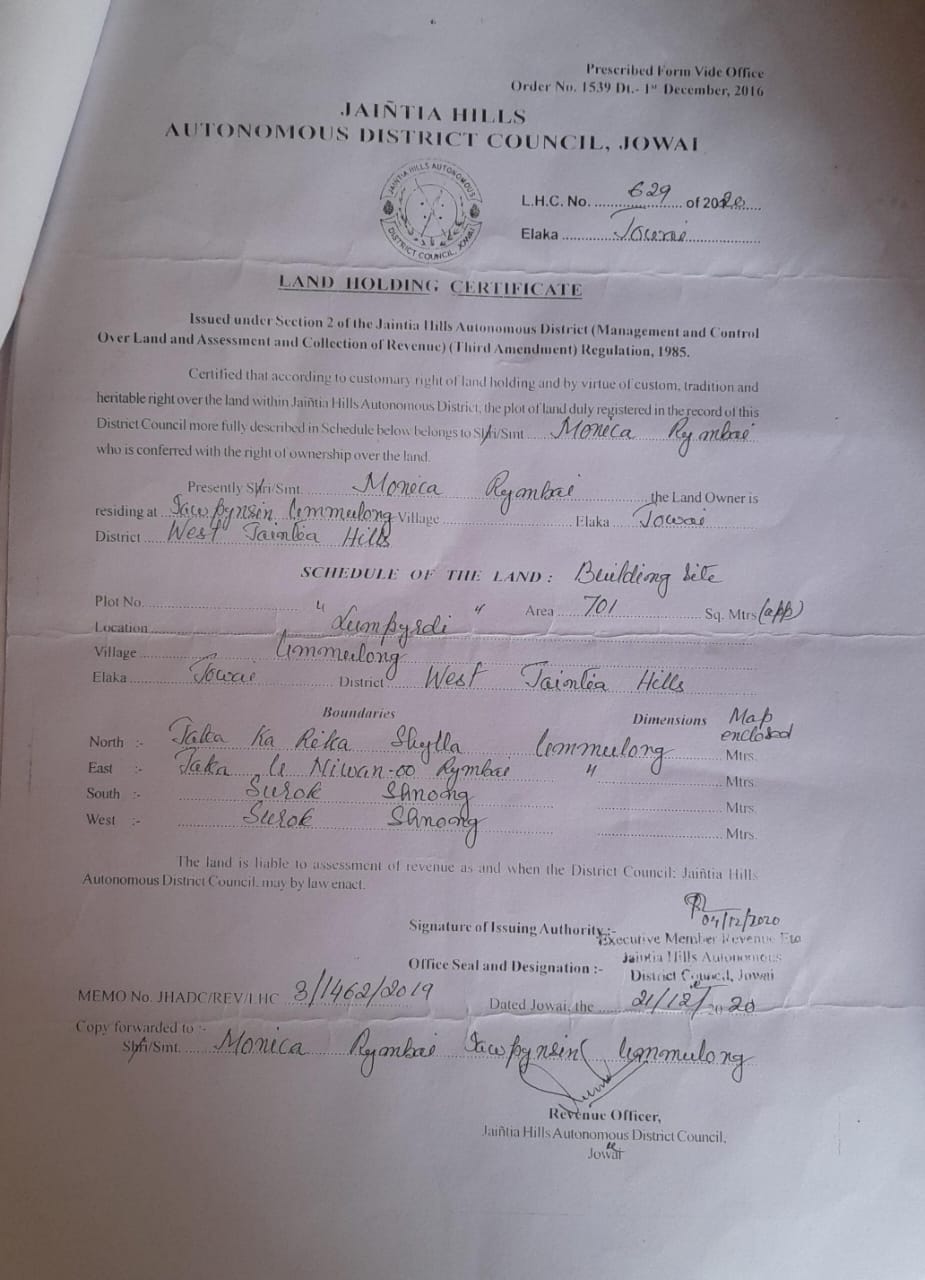 Prescribed Form Vide Office
Order No. 1539 Dt.- 1st December, 2016
JAIÑTIA HILLS
AUTONOMOUS DISTRICT COUNCIL, JOWAI
JAIÑTIA HILLS AUTONOMOUS
DISTRICT COUNCIL, JOWAI
L.H.C. No. 629 of 2020
Elaka Jowai
LAND HOLDING CERTIFICATE
Issued under Section 2 of the Jaintia Hills Autonomous District (Management and Control
Over Land and Assessment and Collection of Revenue) (Third Amendment) Regulation, 1985.
Certified that according to customary right of land holding and by virtue of custom, tradition and
heritable right over the land within Jaiñtia Hills Autonomous District, the plot of land duly registered in the record of this
District Council more fully described in Schedule below belongs to Shri/Smt. Monica Rymbai
who is conferred with the right of ownership over the land.
Presently Shri/Smt. Monica Rymbai the Land Owner is
residing at Iawpynsin Ummulong Village Elaka Jowai
District West Jaintia Hills
SCHEDULE OF THE LAND : Building Site
Plot No. Area 701 Sq. Mtrs (app)
Location " Lumpyrdi "
Village Ummulong
Elaka Jowai District West Jaintia Hills
Boundaries Dimensions Map enclosed
North :- Jaka Ka Rika Shylla Ummulong Mtrs.
East :- Jaka U Niwan-oo Rymbai " Mtrs.
South :- Surok Shnong Mtrs.
West :- Surok Shnong Mtrs.
The land is liable to assessment of revenue as and when the District Council: Jaiñtia Hills
Autonomous District Council, may by law enact.
04/12/2020
Signature of Issuing Authority :-
Executive Member Revenue Etc
Jaintia Hills Autonomous
Office Seal and Designation :-
District Council, Jowai
MEMO No. JHADC/REV/LHC 3/1462/2019 Dated Jowai, the 21/12/2020
Copy forwarded to :-
Shri/Smt. Monica Rymbai Iawpynsin Ummulong
Revenue Officer,
Jaiñtia Hills Autonomous District Council,
Jowai